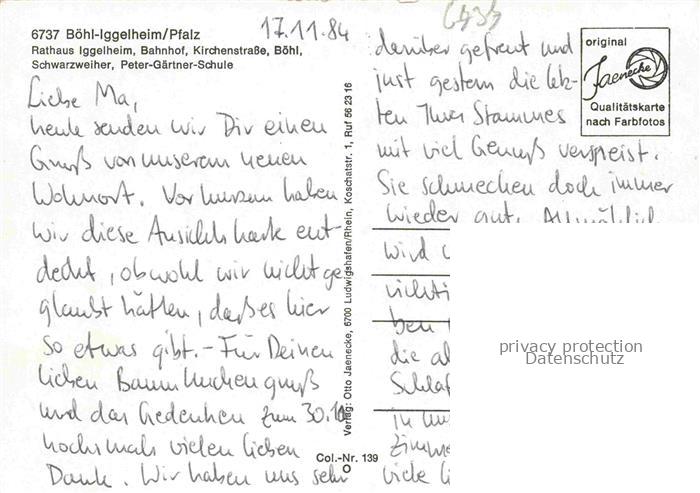 6737 Böhl-Iggelheim/Pfalz
Rathaus Iggelheim, Bahnhof, Kirchenstraße, Böhl,
Schwarzweiher, Peter-Gärtner-Schule
17.11.84
Liebe Ma,
heute senden wir Dir einen
Gruß von unserem neuen
Wohnort. Vor kurzem haben
wir diese Ansichtskarte ent-
deckt, obwohl wir nicht ge-
glaubt hätten, daß es hier
so etwas gibt. - Für Deinen
lieben Baumkuchengruß
und das Gedenken zum 30.10
nochmals vielen lieben
Dank. Wir haben uns sehr
Verlag: Otto Jaenecke, 6700 Ludwigshafen/Rhein, Koschatstr. 1, Ruf 56 23 16
Col.-Nr. 139
darüber gefreut und
just gestern die letz-
ten Ihres Stammes
mit viel Genuß verspeist.
Sie schmecken doch immer
wieder gut. Allmählich
wird
richti
ben
die al
Schlaf
in un
Zimme
viele li
original
Jaenecke
Qualitätskarte
nach Farbfotos
privacy protection
Datenschutz